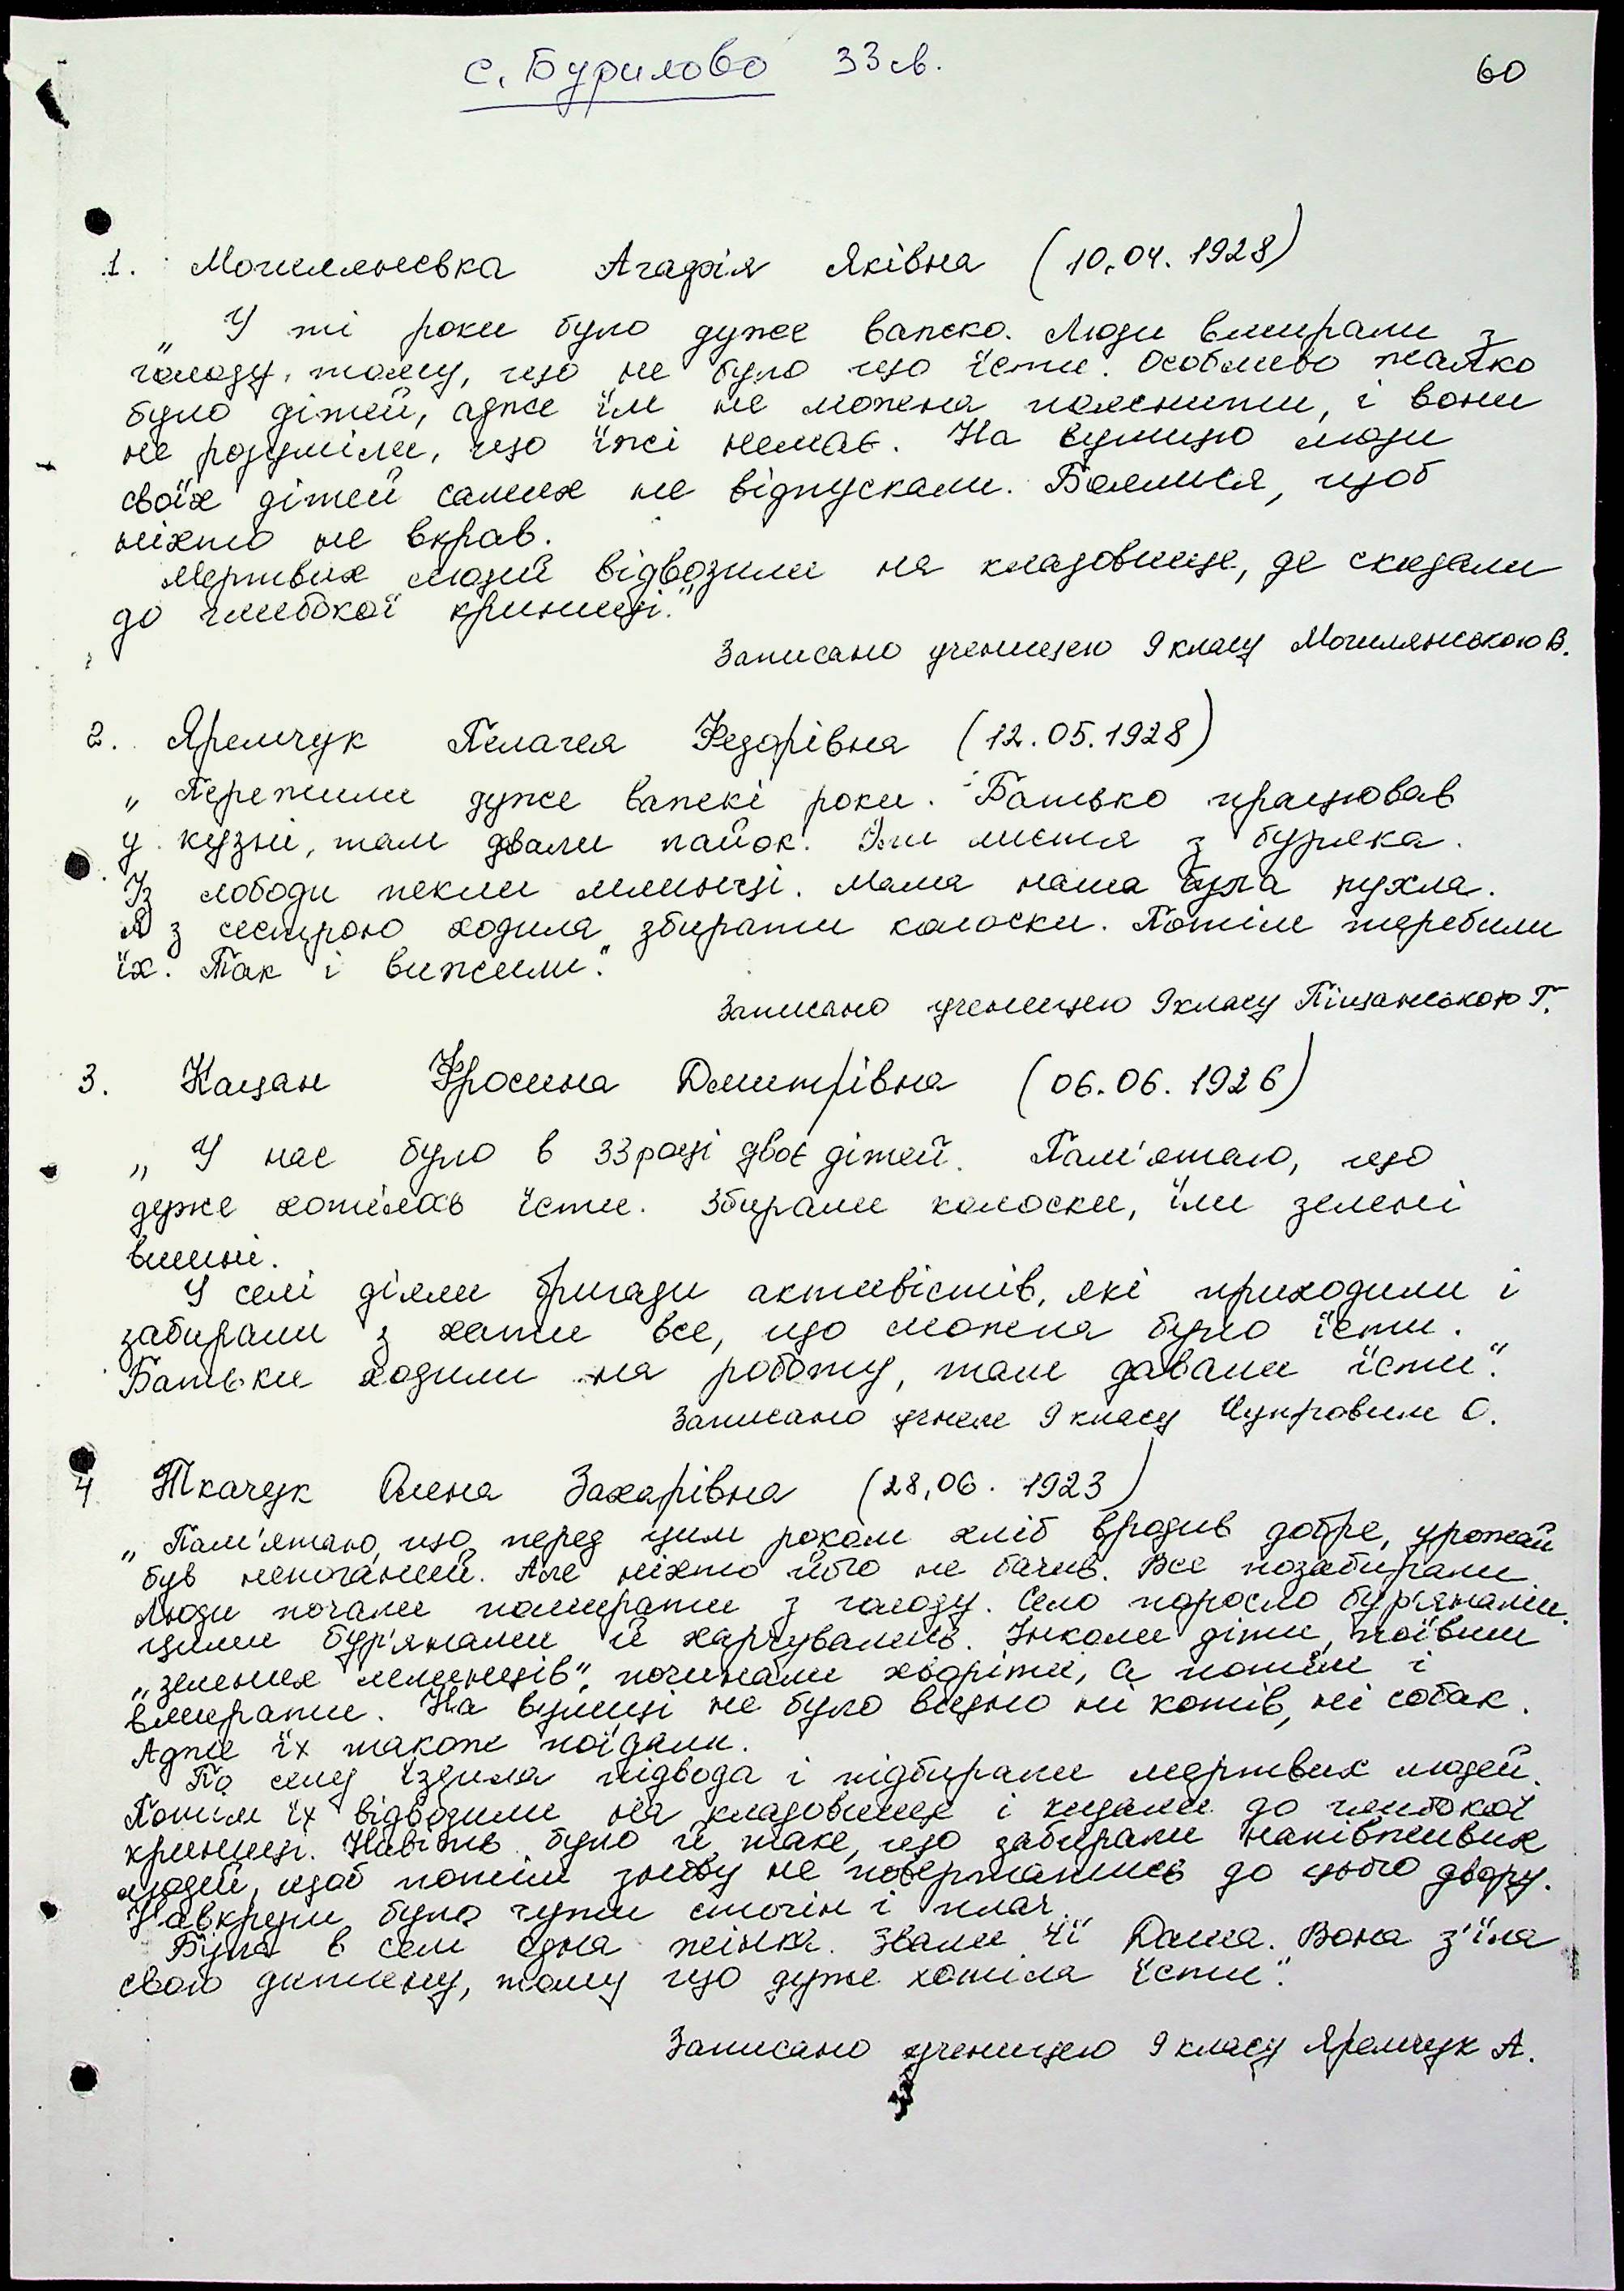 с. Бурилово 33 св.
60
1. Могилянська Агафія Яківна (10.04.1928)
„ У ті роки було дуже важко. Люди вмирали з
голоду, тому, що не було що їсти. Особливо жалко
було дітей, адже їм не можна пояснити, і вони
не розуміли, що їжі немає. На вулицю люди
своїх дітей самих не відпускали. Боялися, щоб
ніхто не вкрав.
Мертвих людей відвозили на кладовище, де скидали
до глибокої криниці."
Записано ученицею 9 класу Могилянською В.
2. Яремчук Пелагея Федорівна (12.05.1928)
„ Пережили дуже важкі роки. Батько працював
у кузні, там давали пайок. Їли листя з буряка.
Із лободи пекли млинці. Мама наша була пухла.
Я з сестрою ходила збирати колоски. Потім теребили
їх. Так і вижили."
Записано ученицею 9 класу Піщанською Г.
3. Кацан Фросина Дмитрівна (06.06.1926)
„ У нас було в 33 році двоє дітей. Пам'ятаю, що
дуже хотілось їсти. Збирали колоски, їли зелені
вишні.
У селі діяли бригади активістів, які приходили і
забирали з хати все, що можна було їсти.
Батьки ходили на роботу, там давали їсти".
Записано учнем 9 класу Цупровим О.
4 Ткачук Олена Захарівна (28.06.1923)
„ Пам'ятаю, що перед цим роком хліб вродив добре, урожай
був непоганий. Але ніхто його не бачив. Все позабирали.
Люди почали помирати з голоду. Село поросло бур'янами.
Цими бур'янами й харчувались. Інколи діти, поївши
„зелених млинців", починали хворіти, а потім і
вмирати. На вулиці не було видно ні котів, ні собак.
Адже їх також поїдали.
По селу їздила підвода і підбирали мертвих людей.
Потім їх відвозили на кладовище і кидали до глибокої
криниці. Навіть було й таке, що забирали напівживих
людей, щоб потім знову не повертатись до цього двору.
Навкруги було чути стогін і плач.
Була в селі одна жінка. Звали її Даша. Вона з'їла
свою дитину, тому що дуже хотіла їсти".
Записано ученицею 9 класу Яремчук А.